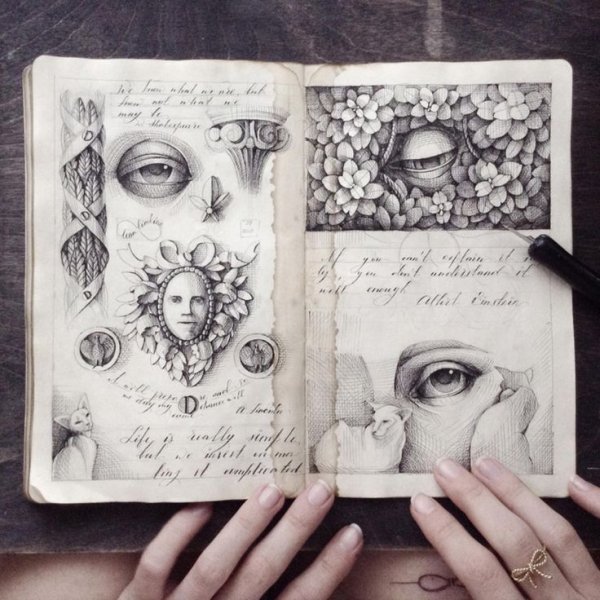 We know what we are, but
know not what we
may be
Shakespeare
D
D
D
I will prepare and
my day my chance will
come
D
A. Lincoln
Life is really simple,
but we insist on ma
king it complicated
If you can't explain it
ly, you don't understand it
well enough
Albert Einstein